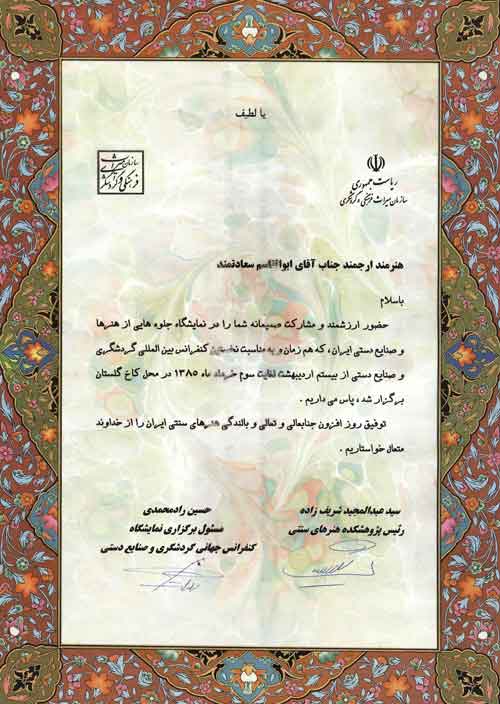 یا لطیف
سازمان میراث
فرهنگی و گردشگری
ریاست جمهوری
سازمان میراث فرهنگی و گردشگری
هنرمند ارجمند جناب آقای ابوالقاسم سعادتمند
باسلام
حضور ارزشمند و مشارکت صمیمانه شما را در نمایشگاه جلوه هایی از هنرها
و صنایع دستی ایران ، که هم زمان و به مناسبت نخستین کنفرانس بین المللی گردشگری
و صنایع دستی از بیستم اردیبهشت لغایت سوم خرداد ماه ۱۳۸۵ در محل کاخ گلستان
برگزار شد ، پاس می داریم .
توفیق روز افزون جنابعالی و تعالی و بالندگی هنرهای سنتی ایران را از خداوند
متعال خواستاریم .
سید عبدالمجید شریف زاده
رئیس پژوهشکده هنرهای سنتی
حسین رادمحمدی
مسئول برگزاری نمایشگاه
کنفرانس جهانی گردشگری و صنایع دستی